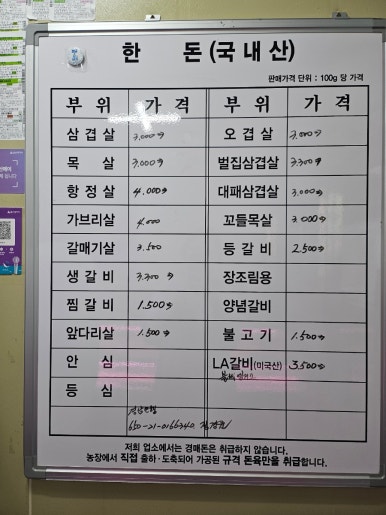 한 돈(국내산)
판매가격 단위 : 100g 당 가격
부 위 가 격 부 위 가 격
삼겹살 3.000원 오겹살 3.000원
목 살 3.000원 벌집삼겹살 3.300원
항정살 4.000원 대패삼겹살 3.000원
가브리살 4.000 꼬들목살 3.000원
갈매기살 3.500 등갈비 2.500원
생갈비 3.300원 장조림용
찜갈비 1.500원 양념갈비
앞다리살 1.500원 불고기 1.500원
안 심 LA갈비(미국산) 3.500원
등 심
저희 업소에서는 경매돈은 취급하지 않습니다.
농장에서 직접 출하·도축되어 가공된 규격 돈육만을 취급합니다.